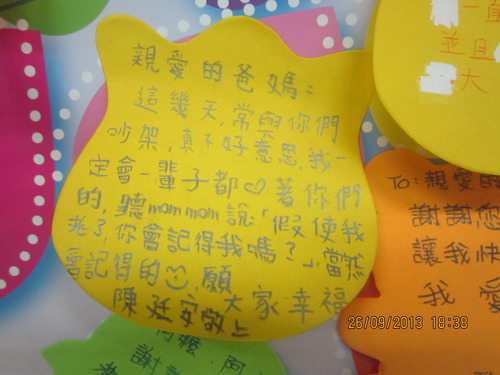 親愛的爸媽：
這幾天，常與你們
吵架，真不好意思，我一
定會一輩子都♡著你們
的，聽mommom說「假使我
老了，你會記得我嗎？」當然
會記得的☺，願
大家幸福
陳廷安敬上
一直
並且
大
To：親愛的
謝謝您
讓我快
我愛
謝謝
26/09/2013 18:38